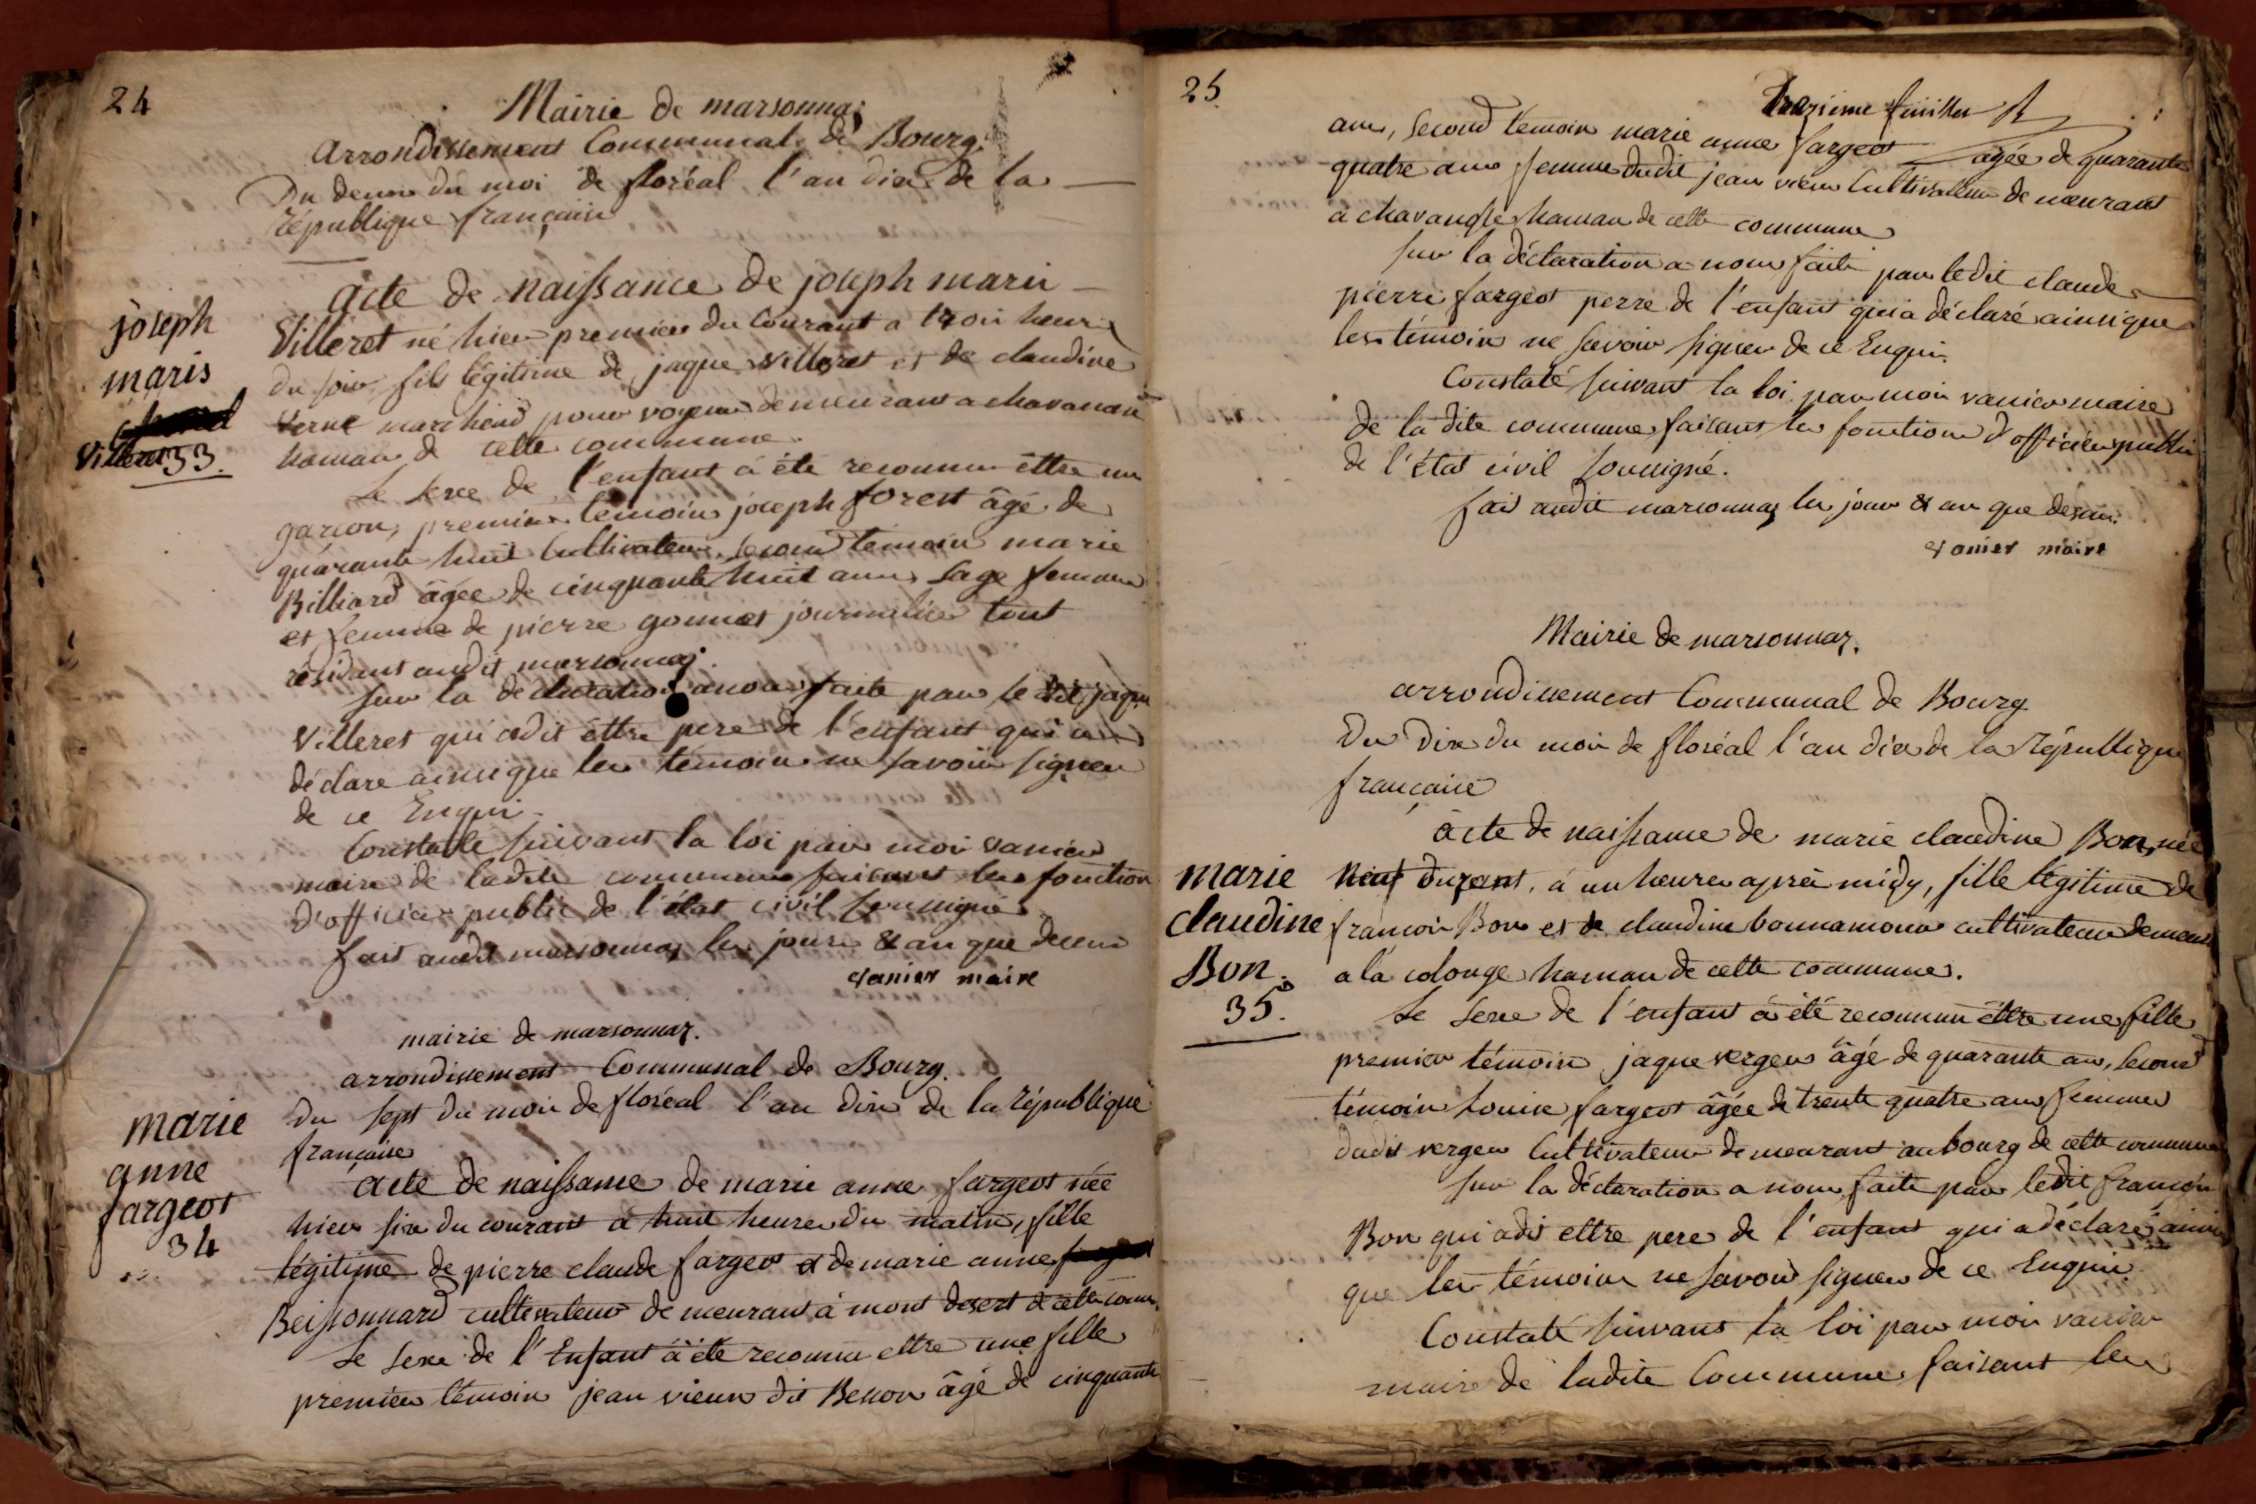 24
Mairie de marsonnaz
arrondissement Communal de Bourg.
Du deux du moi de floréal l'an dix de la
république française
acte de naissance de joseph marie
joseph
maris
Villeret 33.
Villeret né hier premier du courant a troi heure
du soir, fils légitime de jaque villeret et de claudine
verne marchend pour voyeur demeurant a chavanan
hamau de cette commune.
Le sexe de l'enfant à été reconnu être un
garcon, premier temoin joseph forest âgé de
quarante huit Cultivateur, second temoin marie
Billiard âgée de cinquante huit ans Sage femme
et femme de pierre gonnet journalier tout
résidant audit marsonnaz.
Sur la déclaration anous faite par le dit jaque
Villeret qui adit être pere de l'enfant qui a
déclare ainsi que les témoin ne savoir signer
de ce Enqui.
Constaté suivant la loi par moi vanier
maire de ladite commune faisant les fonction
d'officier public de l'état civil soussigné
fait audit marsonnaz les jour & an que dessus
vanier maire
mairie de marsonnaz.
arrondissement Communal de Bourg.
Du sept du moi de floréal l'an dix de la république
française
marie
anne
fargeot
34
acte de naissance de marie anne fargeot née
hier six du courant à huit heures du matin, fille
légitime de pierre claude fargeot et de marie anne
Beissonnard cultivateur demeurant à mont desert de cette comm.
Le sexe de l'Enfant à été reconnu ettre une fille
premier témoin jean vieux dit Besson âgé de cinquante
25
Trezieme feuillet
ans, second temoin marie anne fargeot agée de quarante
quatre ans femme dudit jean vieux Cultivateur demeurant
a chavangle hamau de cette commune
Sur la déclaration a nous faite par ledit claude
pierre fargeot perre de l'enfant qui a déclaré ainsi que
les témoins ne savoir signer de ce Enqui.
Constaté suivant la loi par moi vanier maire
de la dite commune faisant les fonction d'officier public
de l'état civil soussigné.
fait audit marsonnaz les jour & an que dessus.
vanier maire
Mairie de marsonnaz.
arrondissement Communal de Bourg
Du Dix du moi de floréal l'an dix de la république
française
acte de naissance de marie claudine Bon, née
marie
claudine
Bon.
35.
Neuf Durant, à un heures après midy, fille légitime de
francoi Bon et de claudine bonnamour cultivateur demeur
a la colonge hamau de cette commune.
Le sexe de l'enfant à été reconnu êttre une fille
premier témoin jaque verger âgé de quarante an, second
témoin Louise fargeot âgée de trente quatre ans femme
dudit verger Cultivateur demeurant au bourg de cette commune
Sur la déclaration a nous faite par ledit françoi
Bon qui adit ettre pere de l'enfant qui a déclaré ainsi
que les témoin ne savoir signer de ce Enqui
Constaté suivant la loi par moi vanier
maire de ladite Commune faisant les